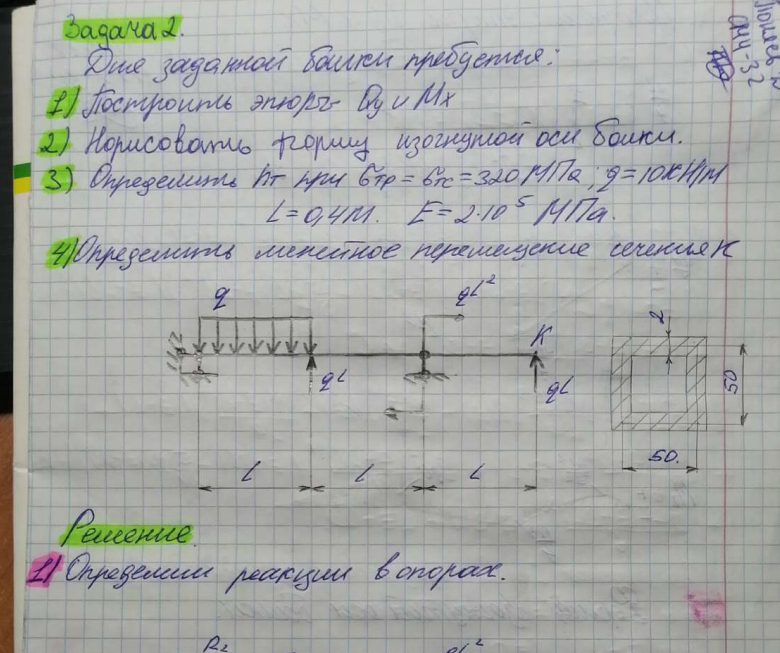 Задача 2.
Для заданной балки требуется:
1) Построить эпюры Qy и Mx
2) Нарисовать форму изогнутой оси балки.
3) Определить nт при σтр = σтс = 320 МПа; q = 10 кН/м
L = 0,4 м. E = 2·10⁵ МПа.
4) Определить линейное перемещение сечения K
q
qL²
K
qL
qL
2
50
50.
L
L
L
Решение.
1) Определим реакции в опорах.
qL²